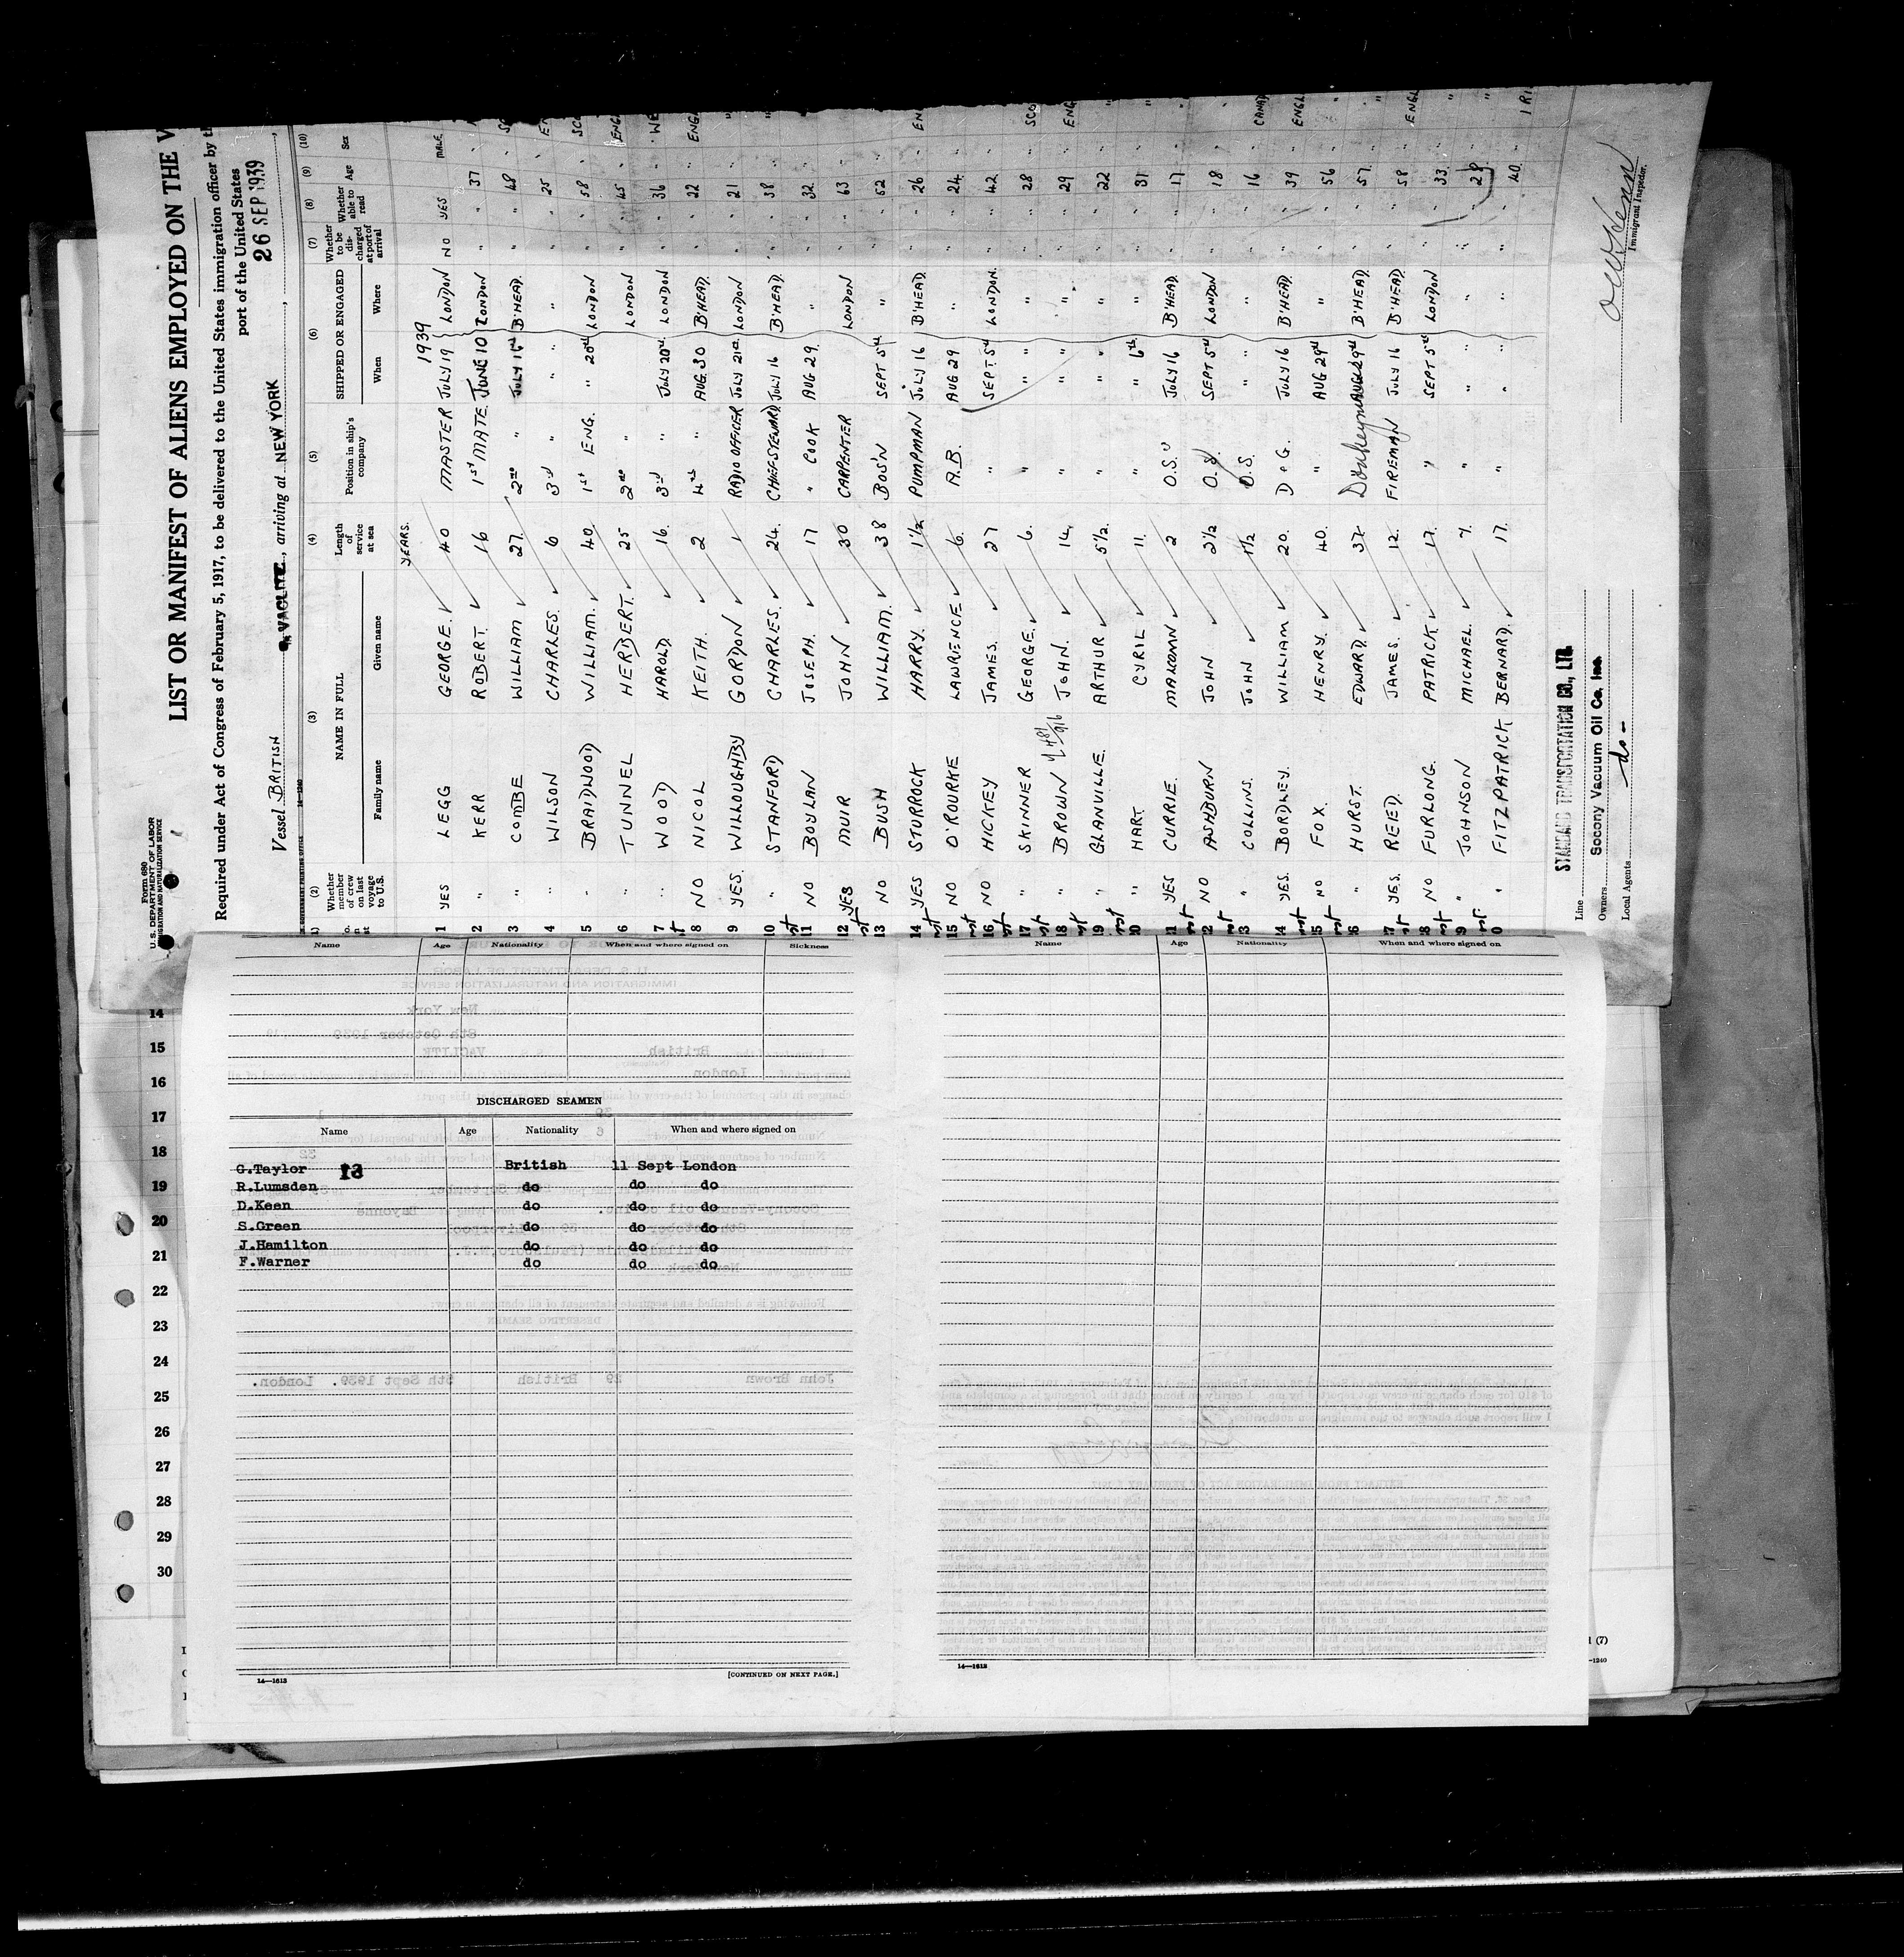 Form 680
U.S. DEPARTMENT OF LABOR
IMMIGRATION AND NATURALIZATION SERVICE
LIST OR MANIFEST OF ALIENS EMPLOYED ON THE V
Required under Act of Congress of February 5, 1917, to be delivered to the United States immigration officer by th
port of the United States
Vessel BRITISH S. VACLITE, arriving at NEW YORK, 26 SEP 1939
(2) (3) (4) (5) (6) (7) (8) (9) (10)
Whether member of crew on last voyage to U.S. NAME IN FULL Family name Given name Length of service at sea Position in ship's company SHIPPED OR ENGAGED When Where Whether to be discharged at port of arrival Whether able to read Age Sex
YEARS. 1939
1 YES LEGG GEORGE. 40 MASTER JULY 19 LONDON NO YES MALE
2 " KERR ROBERT. 16 1st MATE JUNE 10 LONDON " " 37 "
3 " COMBE WILLIAM 27 2nd " JULY 15th B'HEAD. " " 48 "
4 " WILSON CHARLES. 6 3rd " " " " " 25 "
5 " BRAIDWOOD WILLIAM. 40 1st ENG. " 20th LONDON " " 58 "
6 " TUNNEL HERBERT. 25 2nd " LONDON " " 45 "
7 " WOOD HAROLD 16 3rd " JULY 20th LONDON " " 36 "
8 NO NICOL KEITH. 2 4th " AUG. 30 B'HEAD. " " 22 ENGL
9 YES. WILLOUGHBY GORDON 1 RADIO OFFICER JULY 21st LONDON " " 21 "
10 " STANFORD CHARLES. 24 CHIEF STEWARD JULY 16 B'HEAD " " 38 "
11 NO BOYLAN JOSEPH. 17 " COOK AUG 29. " " " 32 "
12 YES MUIR JOHN 30 CARPENTER LONDON " " 63 "
13 NO BUSH WILLIAM. 38 BOS'N SEPT 5th " " " 52 "
14 YES STURROCK HARRY. 1½ PUMPMAN JULY 16 B'HEAD. " " 26 EN
15 NO O'ROURKE LAWRENCE 6. A.B. AUG 29 " " " 24 "
16 NO HICKEY JAMES. 27 " SEPT. 5th LONDON. " " 42 "
17 " SKINNER GEORGE. 6. " " " " " 28 SCO
18 " BROWN JOHN. 14 " " " " " 29 ENG
19 " GLANVILLE. ARTHUR 5½ " " " " " 22 "
20 " HART CYRIL 11. " 6th " " " 31 "
21 YES CURRIE. MALCOMN 2 O.S. JULY 16 B'HEAD. " " 17 "
22 NO ASHBURN JOHN 2½ O.S. SEPT 5th LONDON " " 18 "
23 " COLLINS. JOHN 1½ O.S. " " " " 16 CANAD
24 YES. BORDLEY. WILLIAM 20. D & G. JULY 16 B'HEAD. " " 39 ENGL
25 NO FOX. HENRY. 40. " AUG 29th " " " 56 "
26 " HURST. EDWARD. 37 Donkeyman AUG 29th B'HEAD. " " 57 "
27 YES. REED. JAMES. 12. FIREMAN JULY 16 B'HEAD. " " 58 ENGL
28 NO FURLONG. PATRICK 17. " SEPT 5th LONDON " " 33 "
29 " JOHNSON MICHAEL. 7. " " " " " 28 "
30 " FITZPATRICK BERNARD. 17. " " " " " 40. IRI
Line STANDARD TRANSPORTATION CO., LTD.
Owners Socony Vacuum Oil Co. Inc.
Local Agents -do-
Immigrant Inspector.
Name Age Nationality When and where signed on Sickness
Name Age Nationality When and where signed on
DISCHARGED SEAMEN
Name Age Nationality When and where signed on
G.Taylor 13 British 11 Sept London
R.Lumsden do do do
D.Keen do do do
S.Green do do do
J.Hamilton do do do
F.Warner do do do
14—1613
[CONTINUED ON NEXT PAGE.]
14—1613
14
15
16
17
18
19
20
21
22
23
24
25
26
27
28
29
30
(7)
—1240